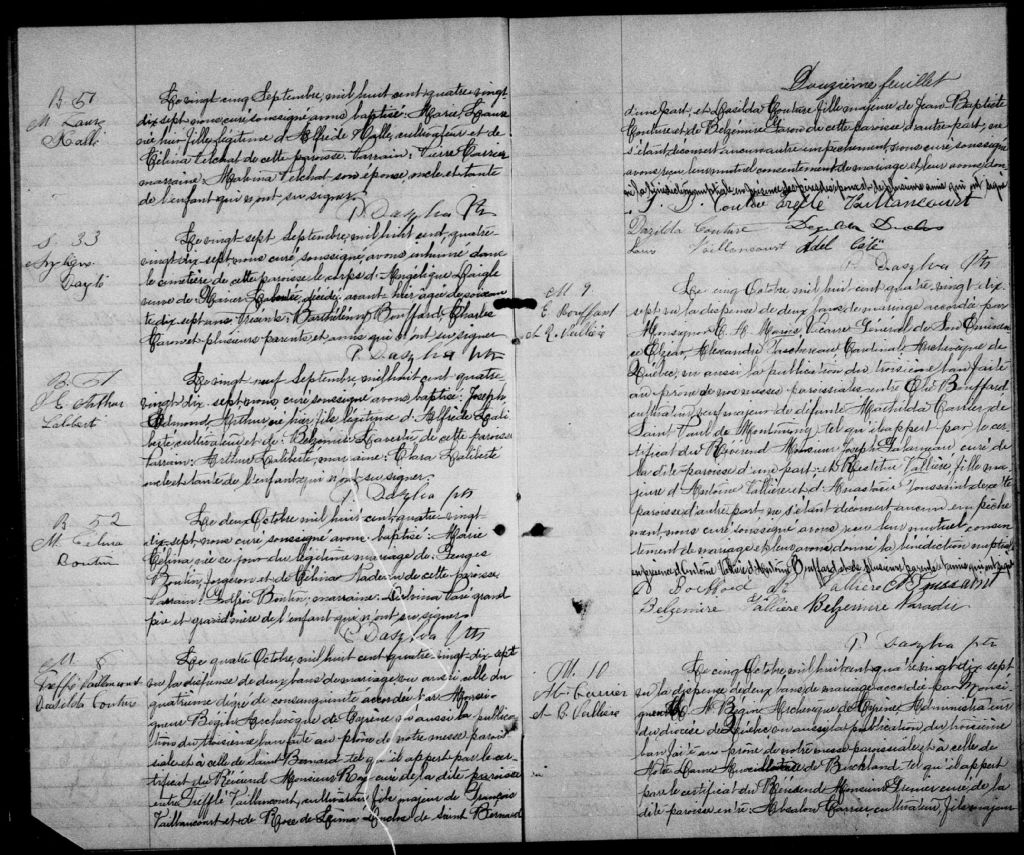 B. 51
M. Laure
Nalli
Le vingt cinq Septembre, mil huit cent quatre vingt-
dix sept nous curé soussigné avons baptisé Marie, Laure
née hier, fille légitime d'Alfred Nolle, cultivateur et de
Célina Terchat de cette paroisse. Parrain: Pierre Carrier
marraine: Malvina Terchat son épouse, oncle et tante
de l'enfant qui n'ont su signer.
P. Dasylva Ptr
S. 33
Le vingt sept Septembre, mil huit cent, quatre-
vingt-dix-sept nous curé, soussigné, avons inhumé dans
le cimetière de cette paroisse le corps d'Angélique
veuve de décédé, avant-hier agée de soixan
te dix sept ans. Présents: Barthélémy Bouffard, Charles
Caron et plusieurs parents et amis qui n'ont su signer
P. Dasylva ptr
J. E. Arthur
Labbert
Le vingt neuf Septembre, mil huit cent quatre
vingt-dix-sept nous curé soussigné avons baptisé: Joseph
Edmond, Arthur né hier, fils légitime d'Alfrède Lali
berté, cultivateur et de de cette paroisse
Parrain: Arthur Laliberté, marraine: Clara Laliberté
oncle et tante de l'enfant qui n'ont su signer.
P. Dasylva ptr
B. 52
M. Célina
Boutin
Le deux Octobre mil huit cent, quatre-vingt
dix sept, nous curé soussigné avons baptisé: Marie
Célina née ce jour du légitime mariage de Georges
Boutin, forgeron et de Célina Nadeau de cette paroisse
Parrain: Boutin, marraine: grand
père et grand'mère de l'enfant qui n'ont su signer.
P. Dasylva ptr
M. 8
Treffé Vaillancourt
Couture
Le quatre Octobre, mil huit cent quatre-vingt-dix sept
vu la dispense de deux bans de mariage vu aussi celle du
quatrième dégré de consanguinité accordée par Monsei-
gneur Begin Archevêque de Cyrène vu aussi la publica-
tion du troisième ban faite au prône de notre messe parois
siale et à celle de Saint Bernard tel qu'il appert par le cer-
tificat du Révérend Monsieur Roy curé de la dite paroisse
entre Trefflé Vaillancourt, cultivateur, fils majeur de François
Vaillancourt et de Rose de Lima de Saint Bernard
Douzième feuillet
d'une part, et Dasilda Couture fille majeure de Jean Baptiste
Couture et de Belzémire de cette paroisse d'autre part, ne
s'étant découvert aucun autre empêchement, nous curé soussigné
avons reçu leur mutuel consentement de mariage et leur avons don
né la bénédiction nuptiale en présence des qui ont signé
J. B. Couture Trefflé Vaillancourt
Dazilda Couture
Vaillancourt Adel Coté
P. Dasylva Ptr
M. 9.
E. Bouffard
et R. Vallière
Le cinq Octobre mil huit cent quatre vingt dix
sept vu la dispense de deux bans de mariage accordée par
Monsignor C. A. Marois Vicaire Général de Son Éminen
ce Elzéar, Alexandre Taschereau, Cardinal Archevêque de
Québec, vu aussi la publication du troisième ban faite
au prône de nos messes paroissiales entre Bouffard
cultivateur, veuf majeur de défunte Mathilda de
Saint Paul de Montminy, tel qu'il appert par le cer-
tificat du Révérend Monsieur Joseph curé de
la dite paroisse d'une part et Restitue Vallière, fille ma-
jeure d'Antoine Vallière et d'Anastasie Toussaint de cette
paroisse d'autre part ne s'étant découvert aucun empêche
ment nous curé soussigné avons reçu leur mutuel consen
tement de mariage et leur avons donné la bénédiction nuptiale
en présence d'Antoine Vallière d'Antoine Bouffard et de plusieurs parents
R. Vallière A Toussaint
Belzemire Vallière Belzemire
P. Dasylva ptr
M. 10
Carrier
et C. Vallière
Le cinq Octobre, mil huit cent quatre vingt dix sept
vu la dispense de deux bans de mariage accordée par Monsei-
gneur Begin Archevêque de Cyrène Administrateur
du diocèse de Québec vu aussi la publication du troisième
ban faite au prône de notre messe paroissiale et à celle de
Notre Dame de Buckland tel qu'il appert
par le certificat du Révérend Monsieur curé de la
dite paroisse entre: Absalon Carrier, cultivateur, fils majeur